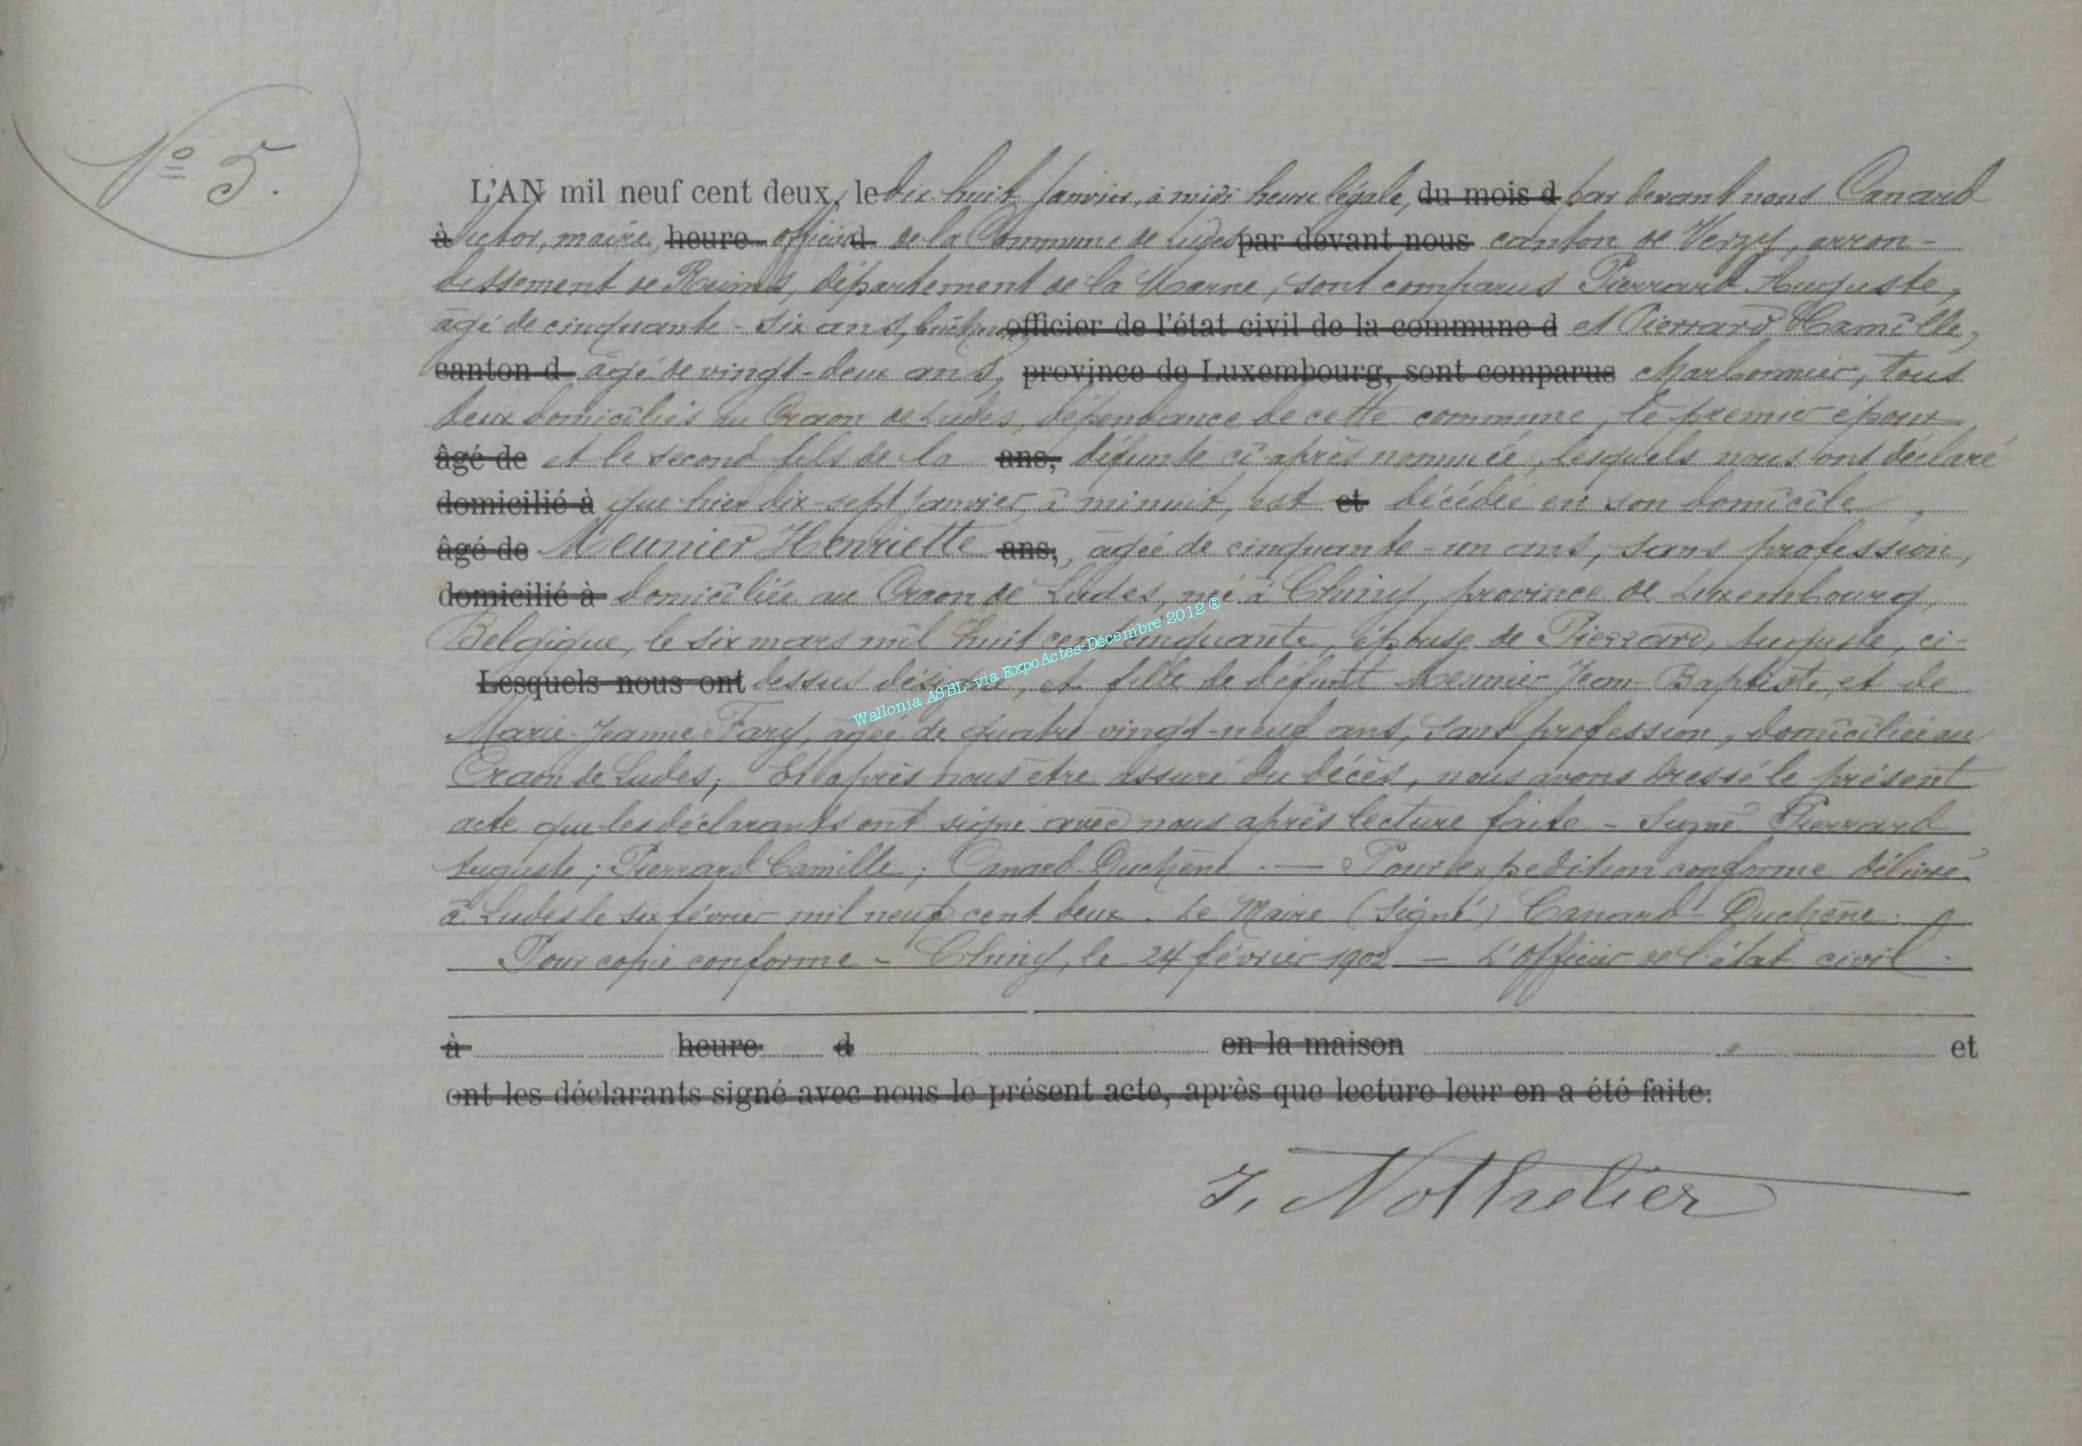 N° 5.
L'AN mil neuf cent deux, le dix-huit Janvier, à midi heure légale, du mois d par devant nous Canard
à Victor, maire, heure officier d de la Commune de Ludes par devant nous canton de Verzy, arron-
dissement de Reims, département de la Marne, sont comparus Pierrard Auguste,
âgé de cinquante-six ans, bûcheron, officier de l'état civil de la commune d et Pierrard Camille,
canton d âgé de vingt-deux ans, province de Luxembourg, sont comparus charbonnier, tous
deux domiciliés au Craon de Ludes, dépendance de cette commune, le premier époux
âgé de et le second fils de la ans, défunte ci-après nommée, lesquels nous ont déclaré
domicilié à que hier dix-sept Janvier, à minuit, est et décédée en son domicile,
âgé de Meunier Henriette ans, âgée de cinquante-un ans, sans profession,
domicilié à domiciliée au Craon de Ludes, née à Chiny, province de Luxembourg,
Belgique, le six mars mil huit cent cinquante, épouse de Pierrard, Auguste, ci-
Lesquels nous ont dessus désigné, et fille de défunt Meunier Jean-Baptiste et de
Marie-Jeanne Fary, âgée de quatre-vingt-neuf ans, sans profession, domiciliée au
Craon de Ludes; Et après nous être assuré du décès, nous avons dressé le présent
acte que les déclarants ont signé avec nous après lecture faite - Signé Pierrard
Auguste; Pierrard Camille; Canard-Duchêne. — Pour expédition conforme délivré
à Ludes le six février mil neuf cent deux. Le Maire (signé) Canard-Duchêne.
Pour copie conforme - Chiny, le 24 février 1902 - L'Officier de l'état civil.
à heure d en la maison et
ont les déclarants signé avec nous le présent acte, après que lecture leur en a été faite.
J. Nothelier
Wallonia ASBL-via ExpoActes-Décembre 2012 ®